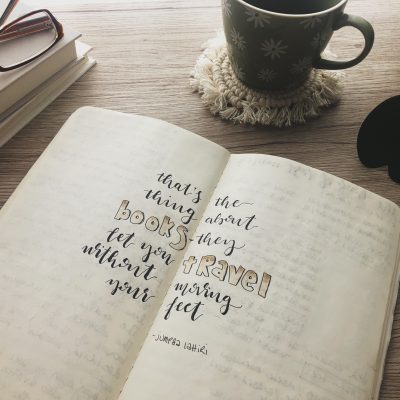 that's the
thing about
books - they
let you travel
without moving
your feet
- Jumpha lahiri